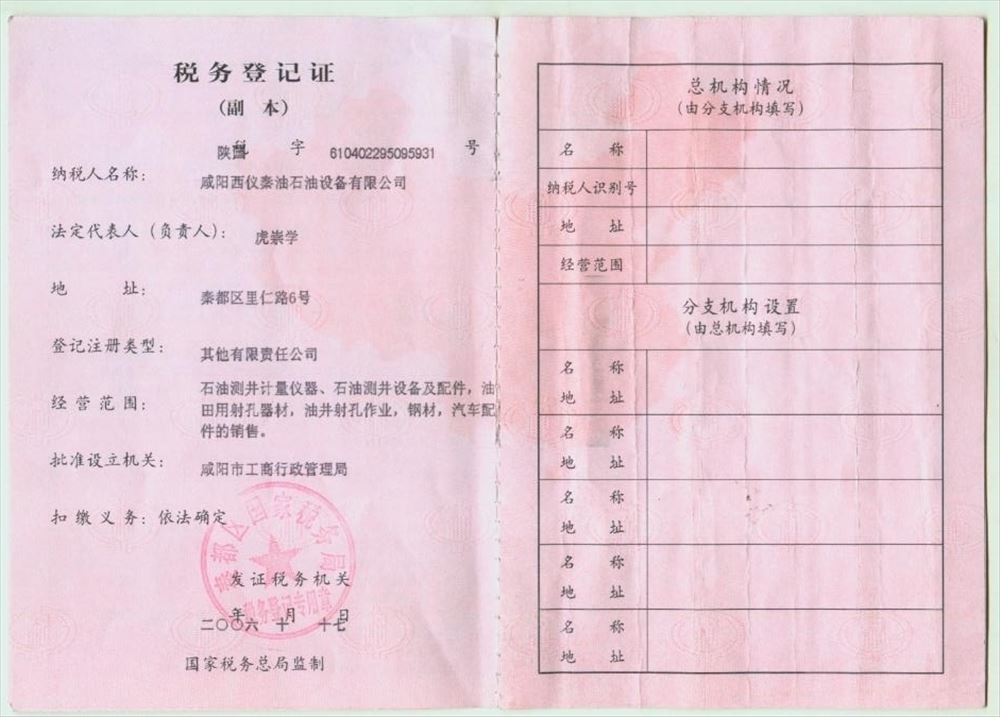 税务登记证
(副 本)
陕国税 字 610402295095931 号
纳税人名称: 咸阳西仪秦油石油设备有限公司
法定代表人(负责人): 虎崇学
地 址: 秦都区里仁路6号
登记注册类型: 其他有限责任公司
经营范围: 石油测井计量仪器、石油测井设备及配件,油
田用射孔器材,油井射孔作业,钢材,汽车配
件的销售。
批准设立机关: 咸阳市工商行政管理局
扣缴义务:依法确定
秦都区国家税务局
税务登记专用章
发证税务机关
二〇〇六年十月十七日
国家税务总局监制
总机构情况
(由分支机构填写)
名 称
纳税人识别号
地 址
经营范围
分支机构设置
(由总机构填写)
名 称
地 址
名 称
地 址
名 称
地 址
名 称
地 址
名 称
地 址